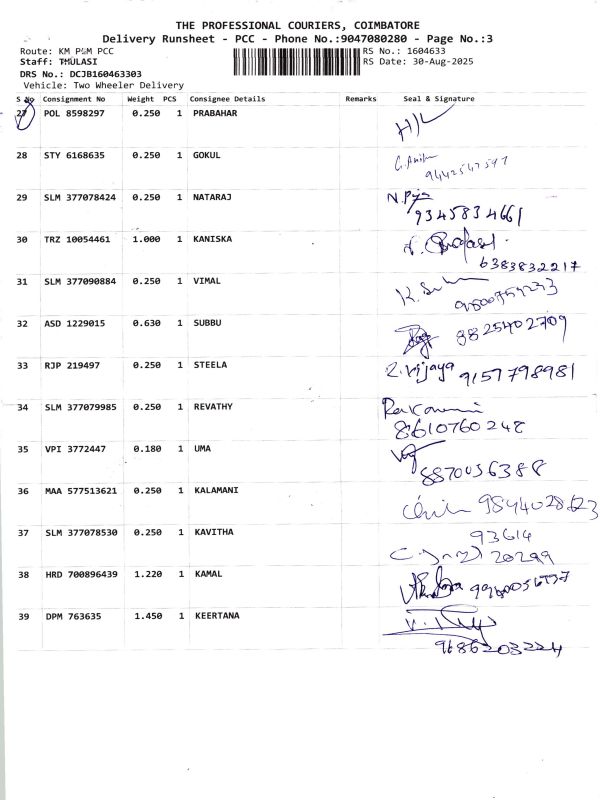 THE PROFESSIONAL COURIERS, COIMBATORE
Delivery Runsheet - PCC - Phone No.:9047080280 - Page No.:3
Route: KM P&M PCC RS No.: 1604633
Staff: TMULASI RS Date: 30-Aug-2025
DRS No.: DCJB160463303
Vehicle: Two Wheeler Delivery
S No Consignment No Weight PCS Consignee Details Remarks Seal & Signature
27 POL 8598297 0.250 1 PRABAHAR
28 STY 6168635 0.250 1 GOKUL
9442547597
29 SLM 377078424 0.250 1 NATARAJ
9345834661
30 TRZ 10054461 1.000 1 KANISKA
6383832217
31 SLM 377090884 0.250 1 VIMAL
32 ASD 1229015 0.630 1 SUBBU 8825402709
33 RJP 219497 0.250 1 STEELA R.Vijaya 9157798981
34 SLM 377079985 0.250 1 REVATHY
8610760248
35 VPI 3772447 0.180 1 UMA
8870056388
36 MAA 577513621 0.250 1 KALAMANI 9844028623
37 SLM 377078530 0.250 1 KAVITHA 93614
20299
38 HRD 700896439 1.220 1 KAMAL
39 DPM 763635 1.450 1 KEERTANA
9686203224